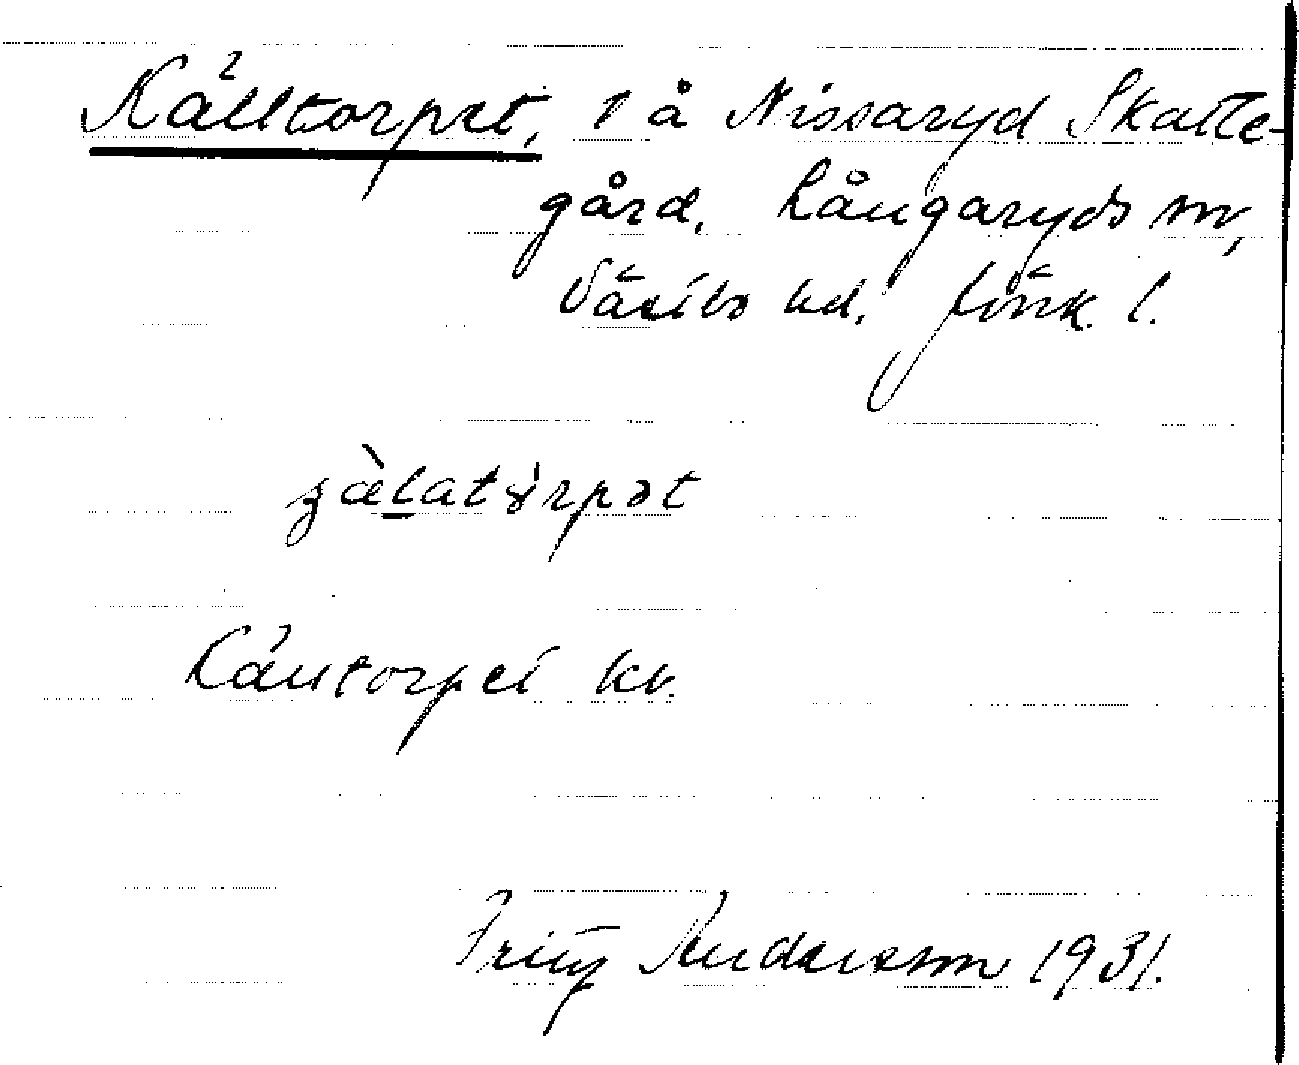 Källtorpet, t å Nissaryd Skatte-
gård, Långaryds sn,
Västbo hd. Jönk. l.
Källtorpet kv.
Fritz Andersson 1931.